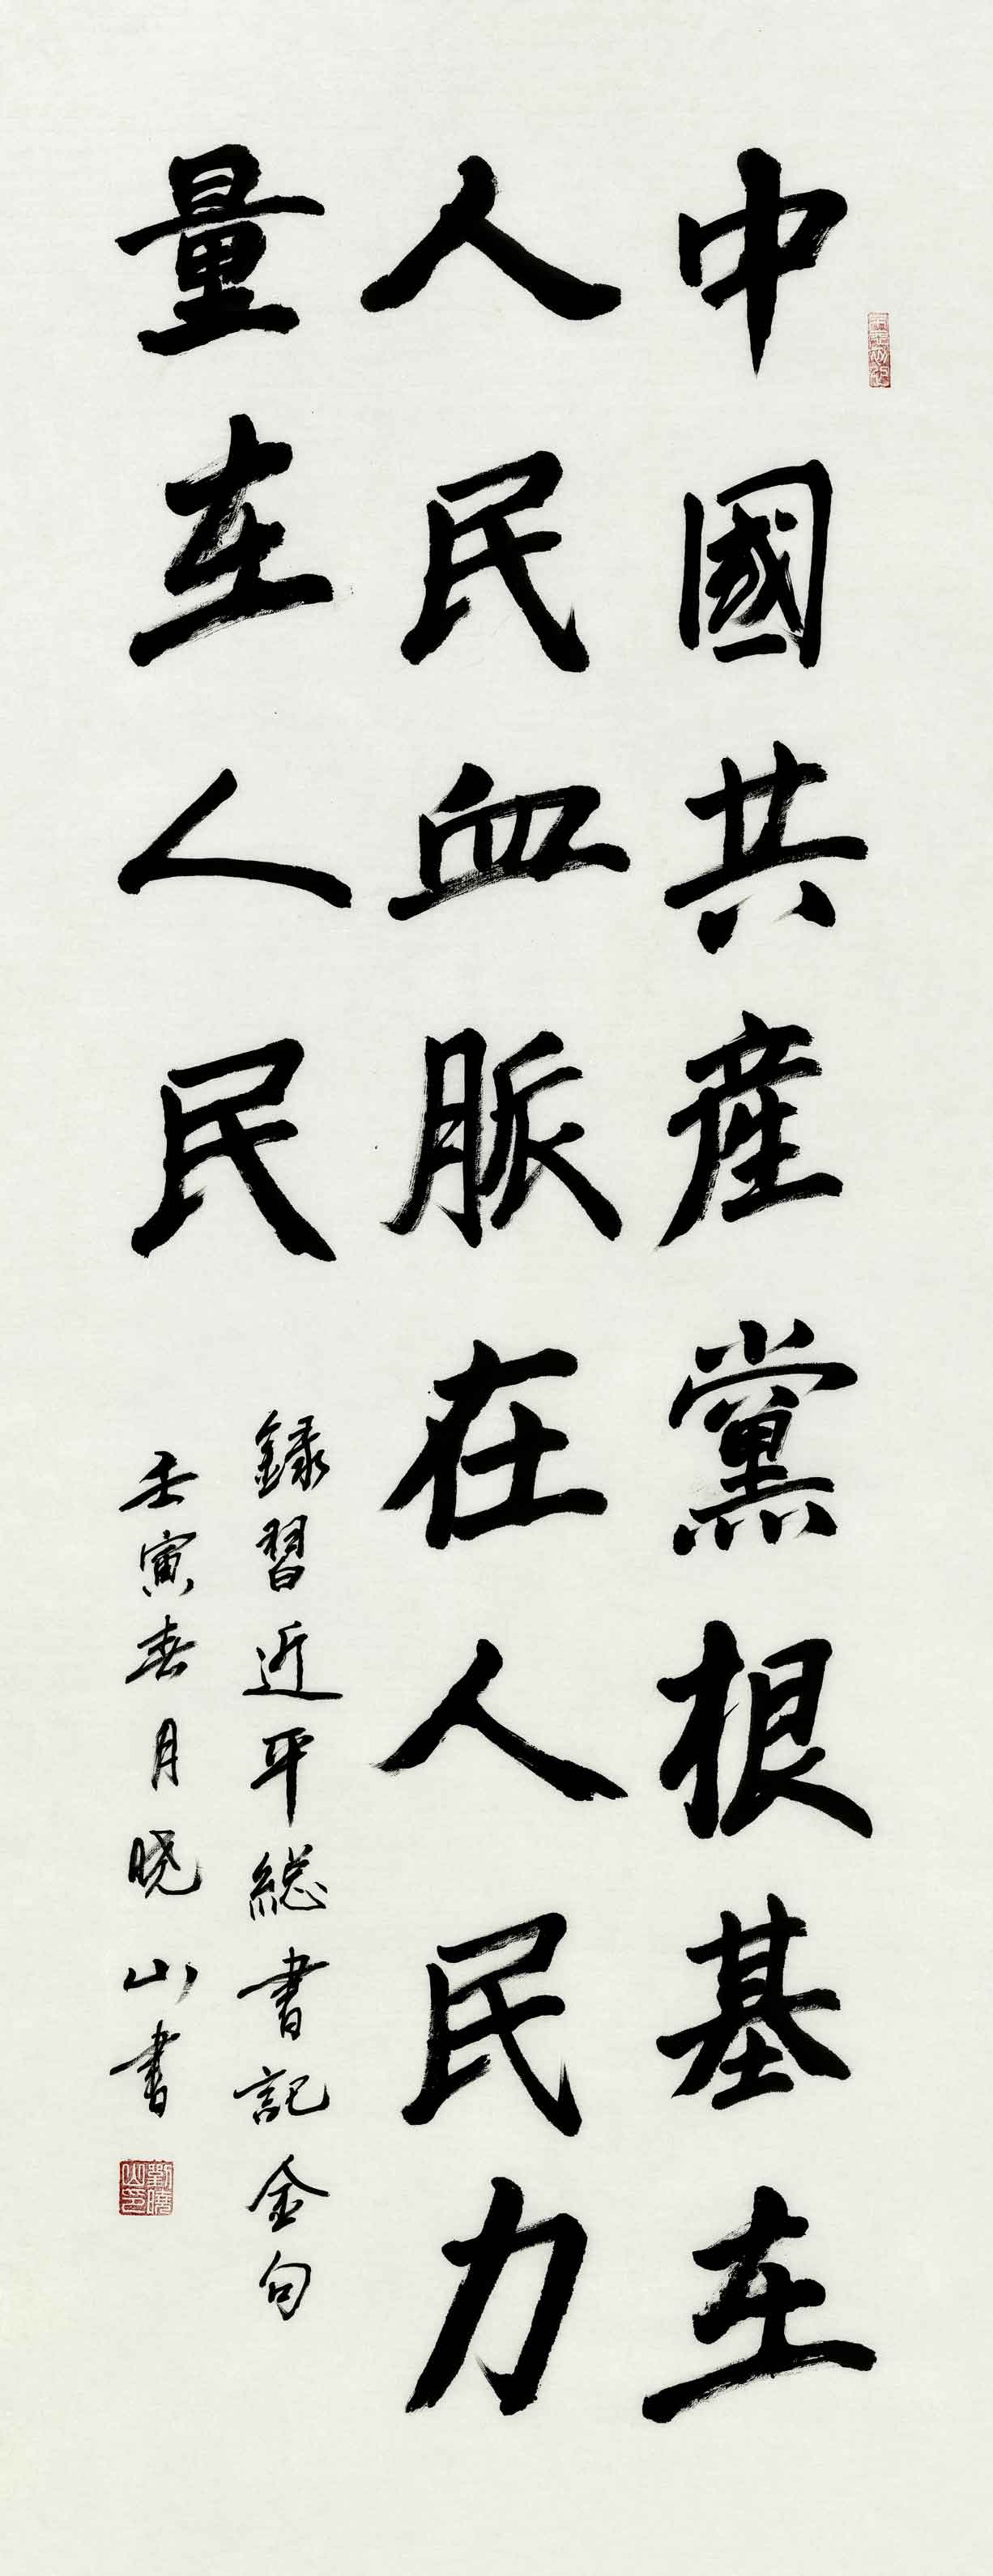 中國共産黨根基在
人民血脈在人民力
量在人民
録習近平総書記金句
壬寅春月晓山書
劉曉山印